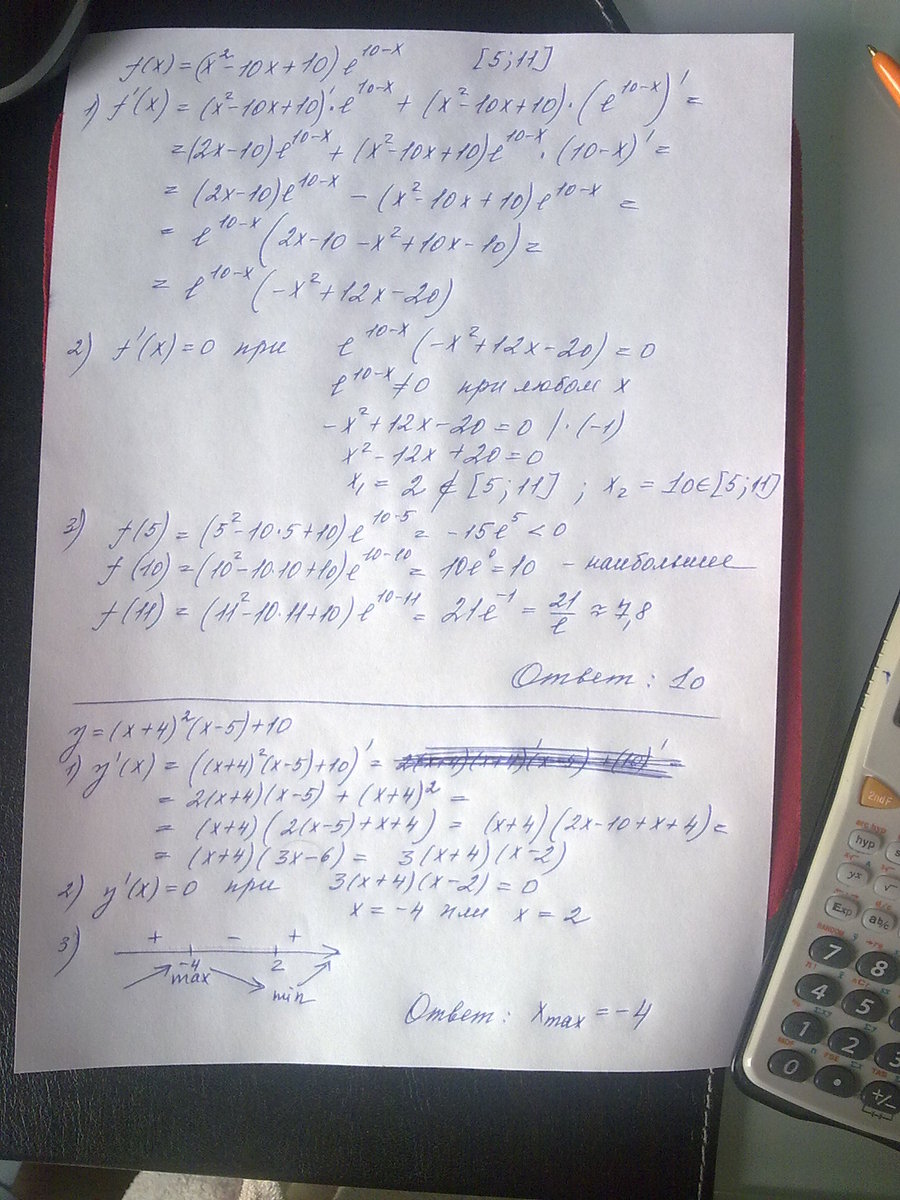 f(x) = (x²-10x+10) e^{10-x} [5;11]
1) f'(x) = (x²-10x+10)'·e^{10-x} + (x²-10x+10)·(e^{10-x})' =
=(2x-10)e^{10-x} + (x²-10x+10)e^{10-x}·(10-x)' =
= (2x-10)e^{10-x} - (x²-10x+10)e^{10-x} =
= e^{10-x}(2x-10-x²+10x-10) =
= e^{10-x}(-x²+12x-20)
2) f'(x)=0 при e^{10-x}(-x²+12x-20)=0
e^{10-x}≠0 при любом x
-x²+12x-20=0 |·(-1)
x²-12x+20=0
x₁ = 2 ∉ [5;11] ; x₂ = 10∈[5;11]
3) f(5) = (5²-10·5+10)e^{10-5} = -15e⁵<0
f(10) = (10²-10·10+10)e^{10-10} = 10e⁰=10 - наибольшее
f(11) = (11²-10·11+10)e^{10-11} = 21e^{-1} = 21/e ≈ 7,8
Ответ: 10
y=(x+4)²(x-5)+10
1) y'(x) = ((x+4)²(x-5)+10)' = =
= 2(x+4)(x-5) + (x+4)² =
= (x+4)(2(x-5)+x+4) = (x+4)(2x-10+x+4)=
= (x+4)(3x-6) = 3(x+4)(x-2)
2) y'(x)=0 при 3(x+4)(x-2)=0
x = -4 или x = 2
3) + - +
-4 2
max min
Ответ: x_{max} = -4
2ndF
hyp
yx
Exp
ab/c
7
8
4
5
1
2
3
0
•
+/-